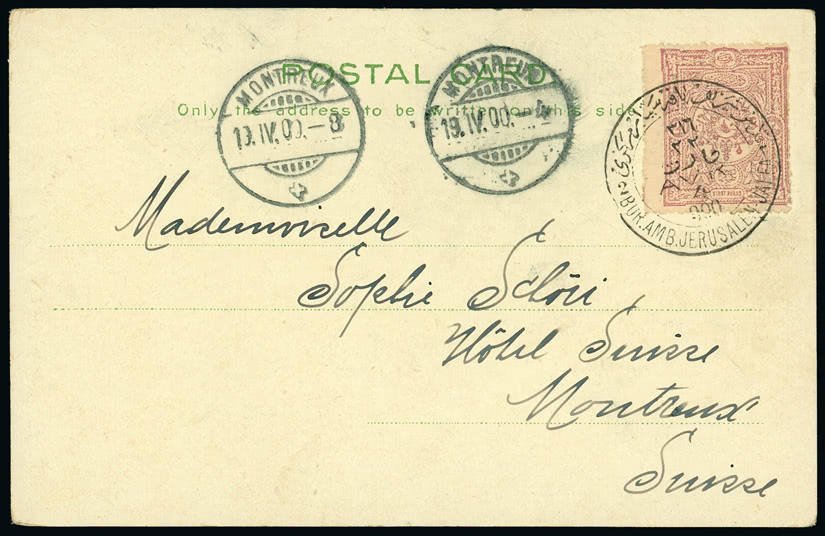 POSTAL CARD.
Only the address to be written on this side
MONTREUX
19.IV.00.-8
MONTREUX
19.IV.00.-4
BUR.AMB.JERUSALEM-JAFFA
Mademoiselle
Sophie Schöri
Hôtel Suisse
Montreux
Suisse